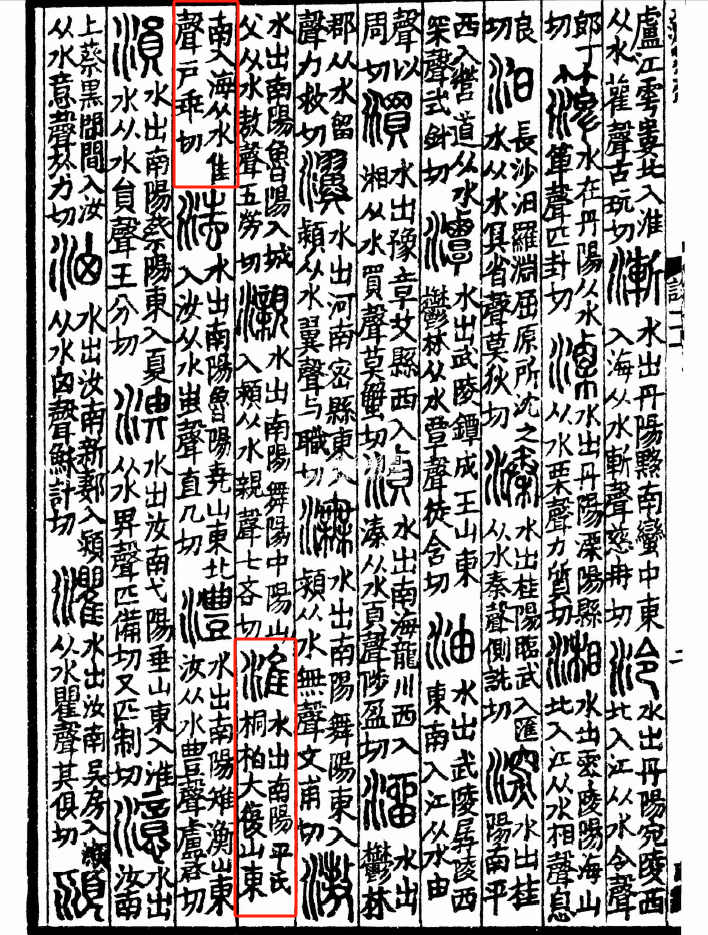 盧江雩婁北入淮从水雚聲古玩切 漸 水出丹陽黟南蠻中東入海从水斬聲慈冉切 泠 水出丹陽宛陵西北入江从水令聲
郎丁切 水在丹陽从水箄聲匹卦切 溧 水出丹陽溧陽縣从水栗聲力質切 湘 水出零陵陽海山北入江从水相聲息
良切 汨 長沙汨羅淵屈原所沈之水从水冥省聲莫狄切 溱 水出桂陽臨武入匯从水秦聲側詵切 深 水出桂陽南平
西入營道从水罙聲式針切 潭 水出武陵鐔成王山東鬱林从水覃聲徒含切 油 水出武陵孱陵西東南入江从水由
聲以周切 水出豫章艾縣西入湘从水買聲莫蟹切 湞 水出南海龍川西入溱从水貞聲陟盈切 溜 水出鬱林
郡从水留聲力救切 瀷 水出河南密縣東入潁从水翼聲与職切 潕 水出南陽舞陽東入潁从水無聲文甫切 滶
水出南陽魯陽入城父从水敖聲五勞切 瀙 水出南陽舞陽中陽山入潁从水親聲七吝切 淮 水出南陽平氏桐柏大復山東
南入海从水隹聲戸乖切 滍 水出南陽魯陽堯山東北入汝从水蚩聲直几切 澧 水出南陽雉衡山東汝从水豊聲盧啓切
溳 水出南陽蔡陽東入夏水从水員聲王分切 淠 水出汝南弋陽垂山東入淮从水畀聲匹備切又匹制切 澺 水出汝南
上蔡黑閭澗入汝从水意聲於力切 水出汝南新郪入潁从水囟聲穌計切 灈 水出汝南吳房入瀙从水瞿聲其俱切 潁